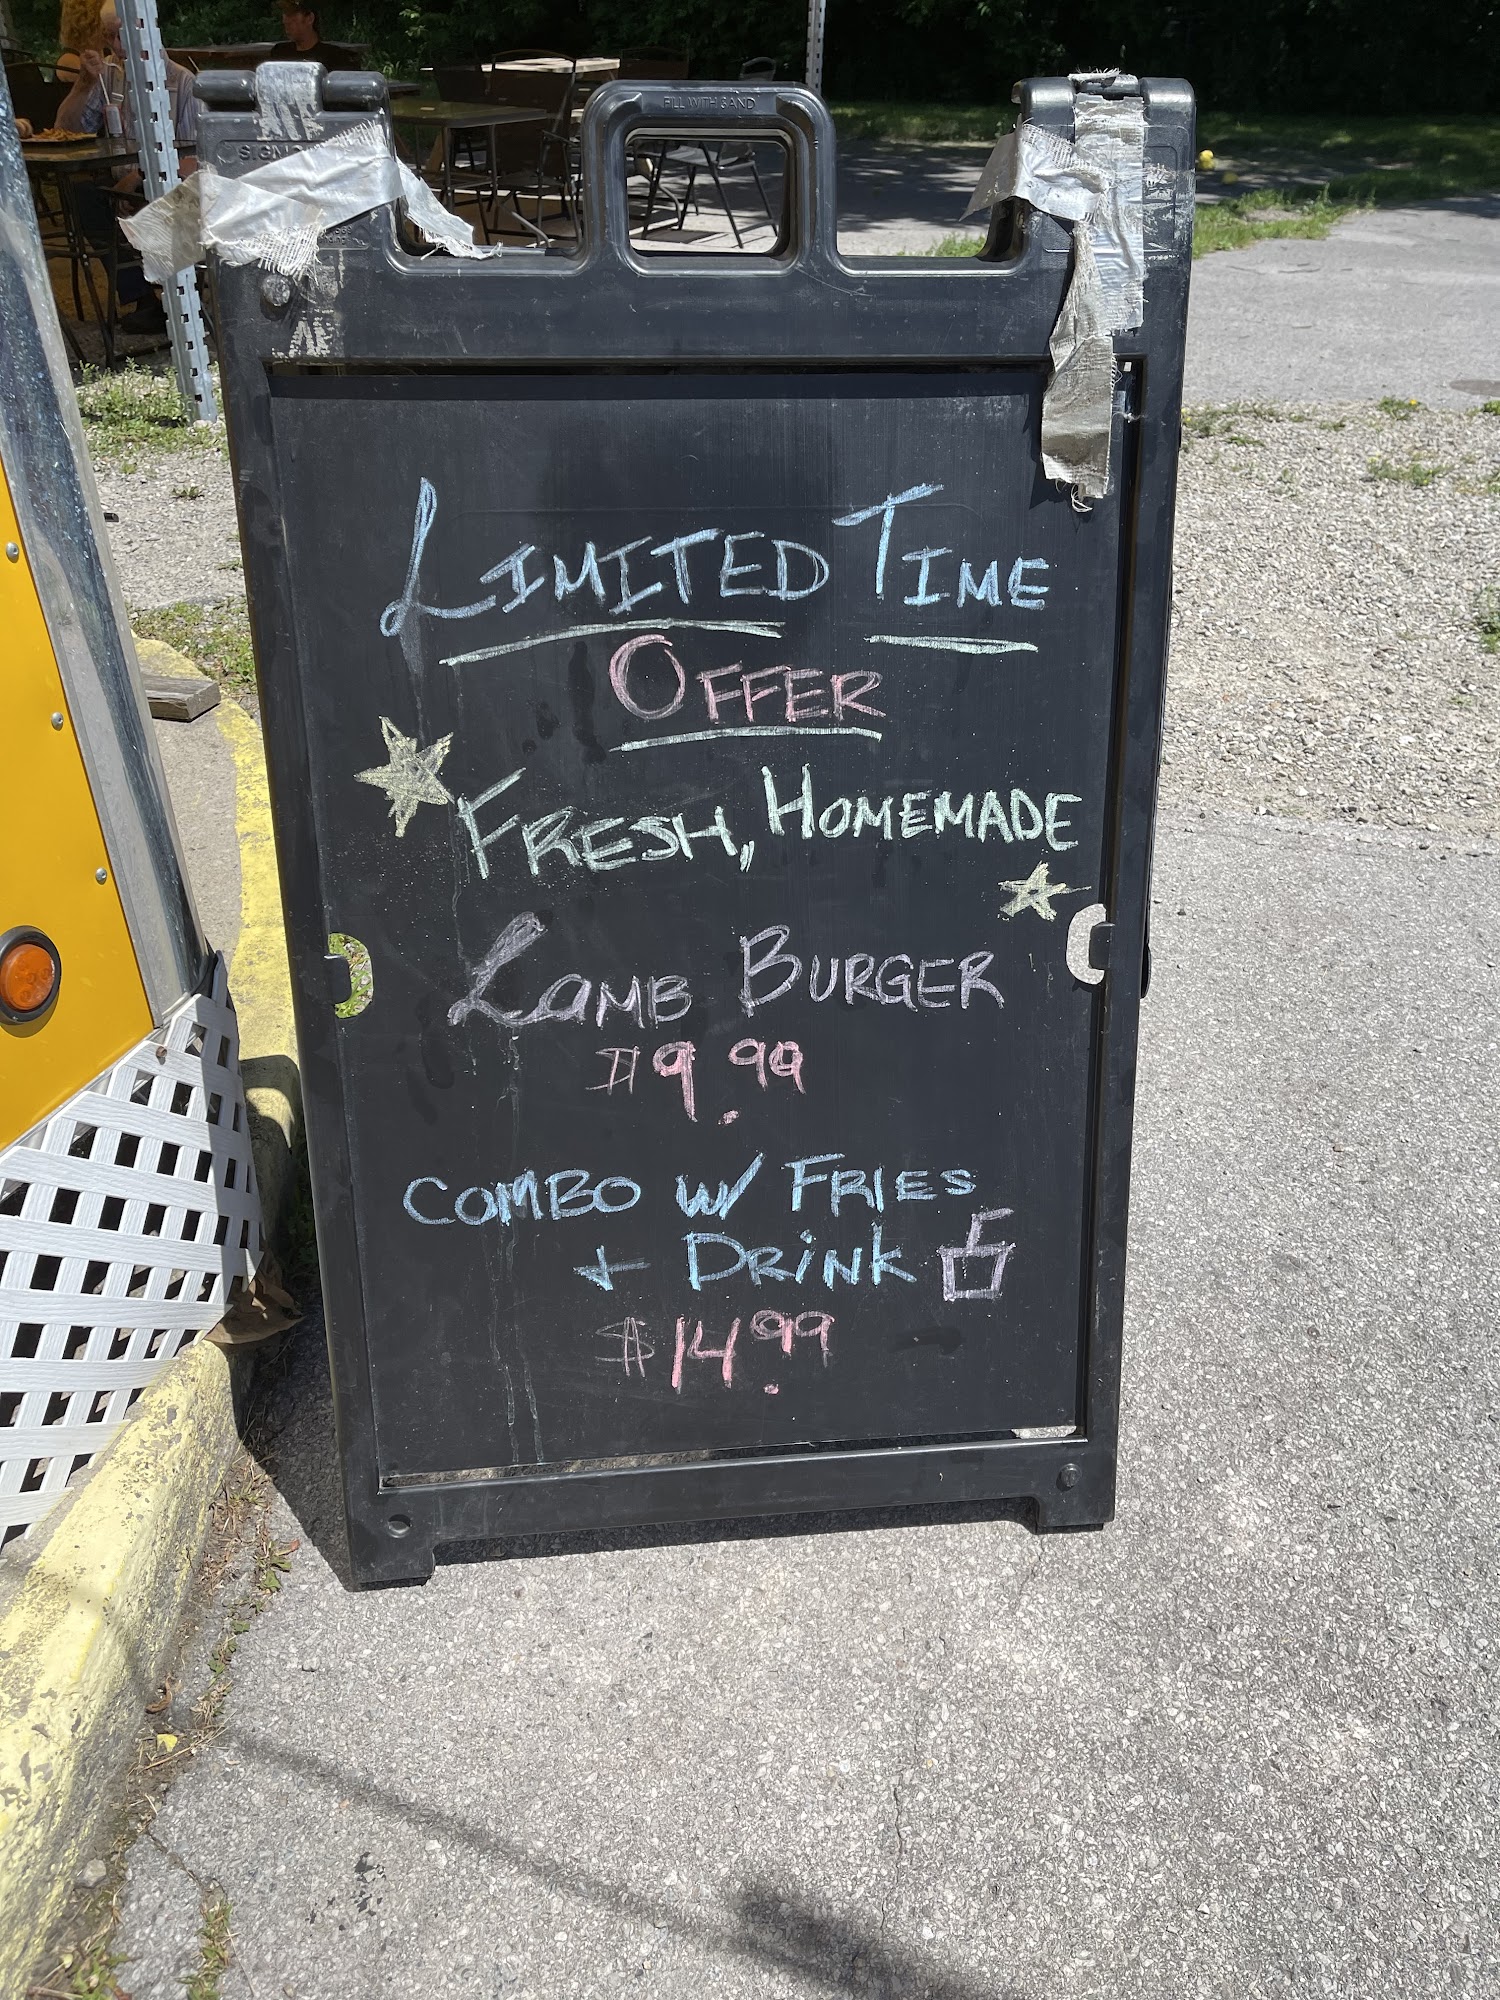 FILL WITH SAND
LIMITED TIME
OFFER
FRESH, HOMEMADE
LAMB BURGER
$9.99
COMBO W/ FRIES
+ DRINK
$14.99